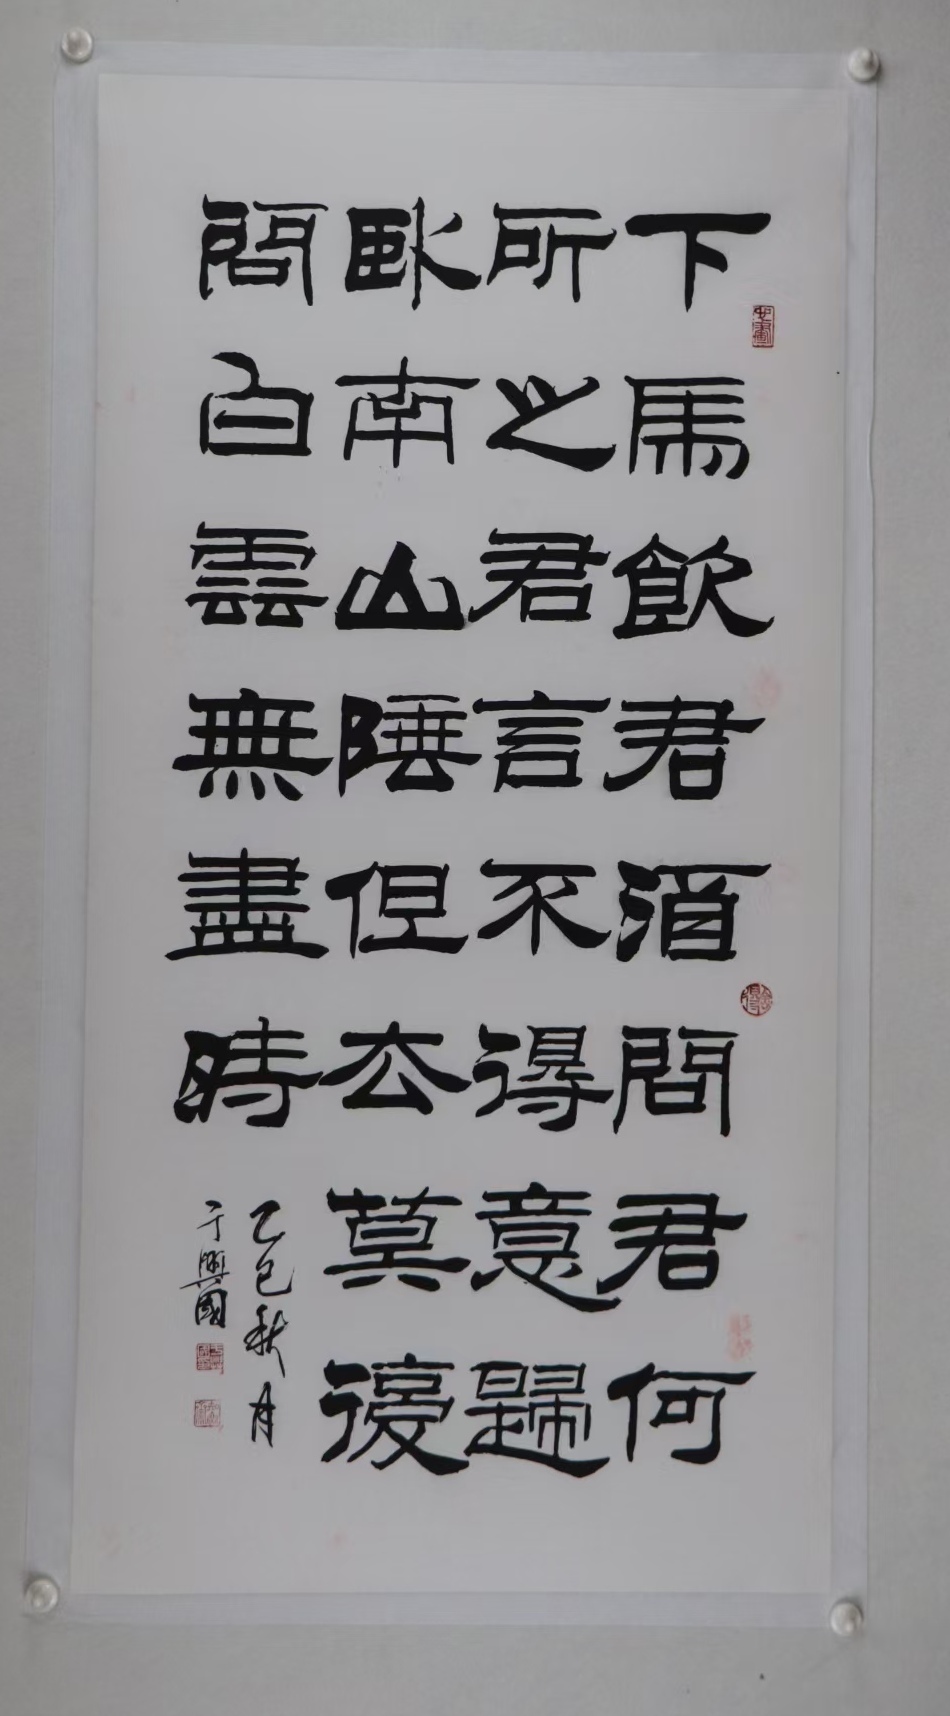 下馬飲君酒問君何
所之君言不得意歸
臥南山陲但去莫復
問白雲無盡時
乙巳秋月
于興國